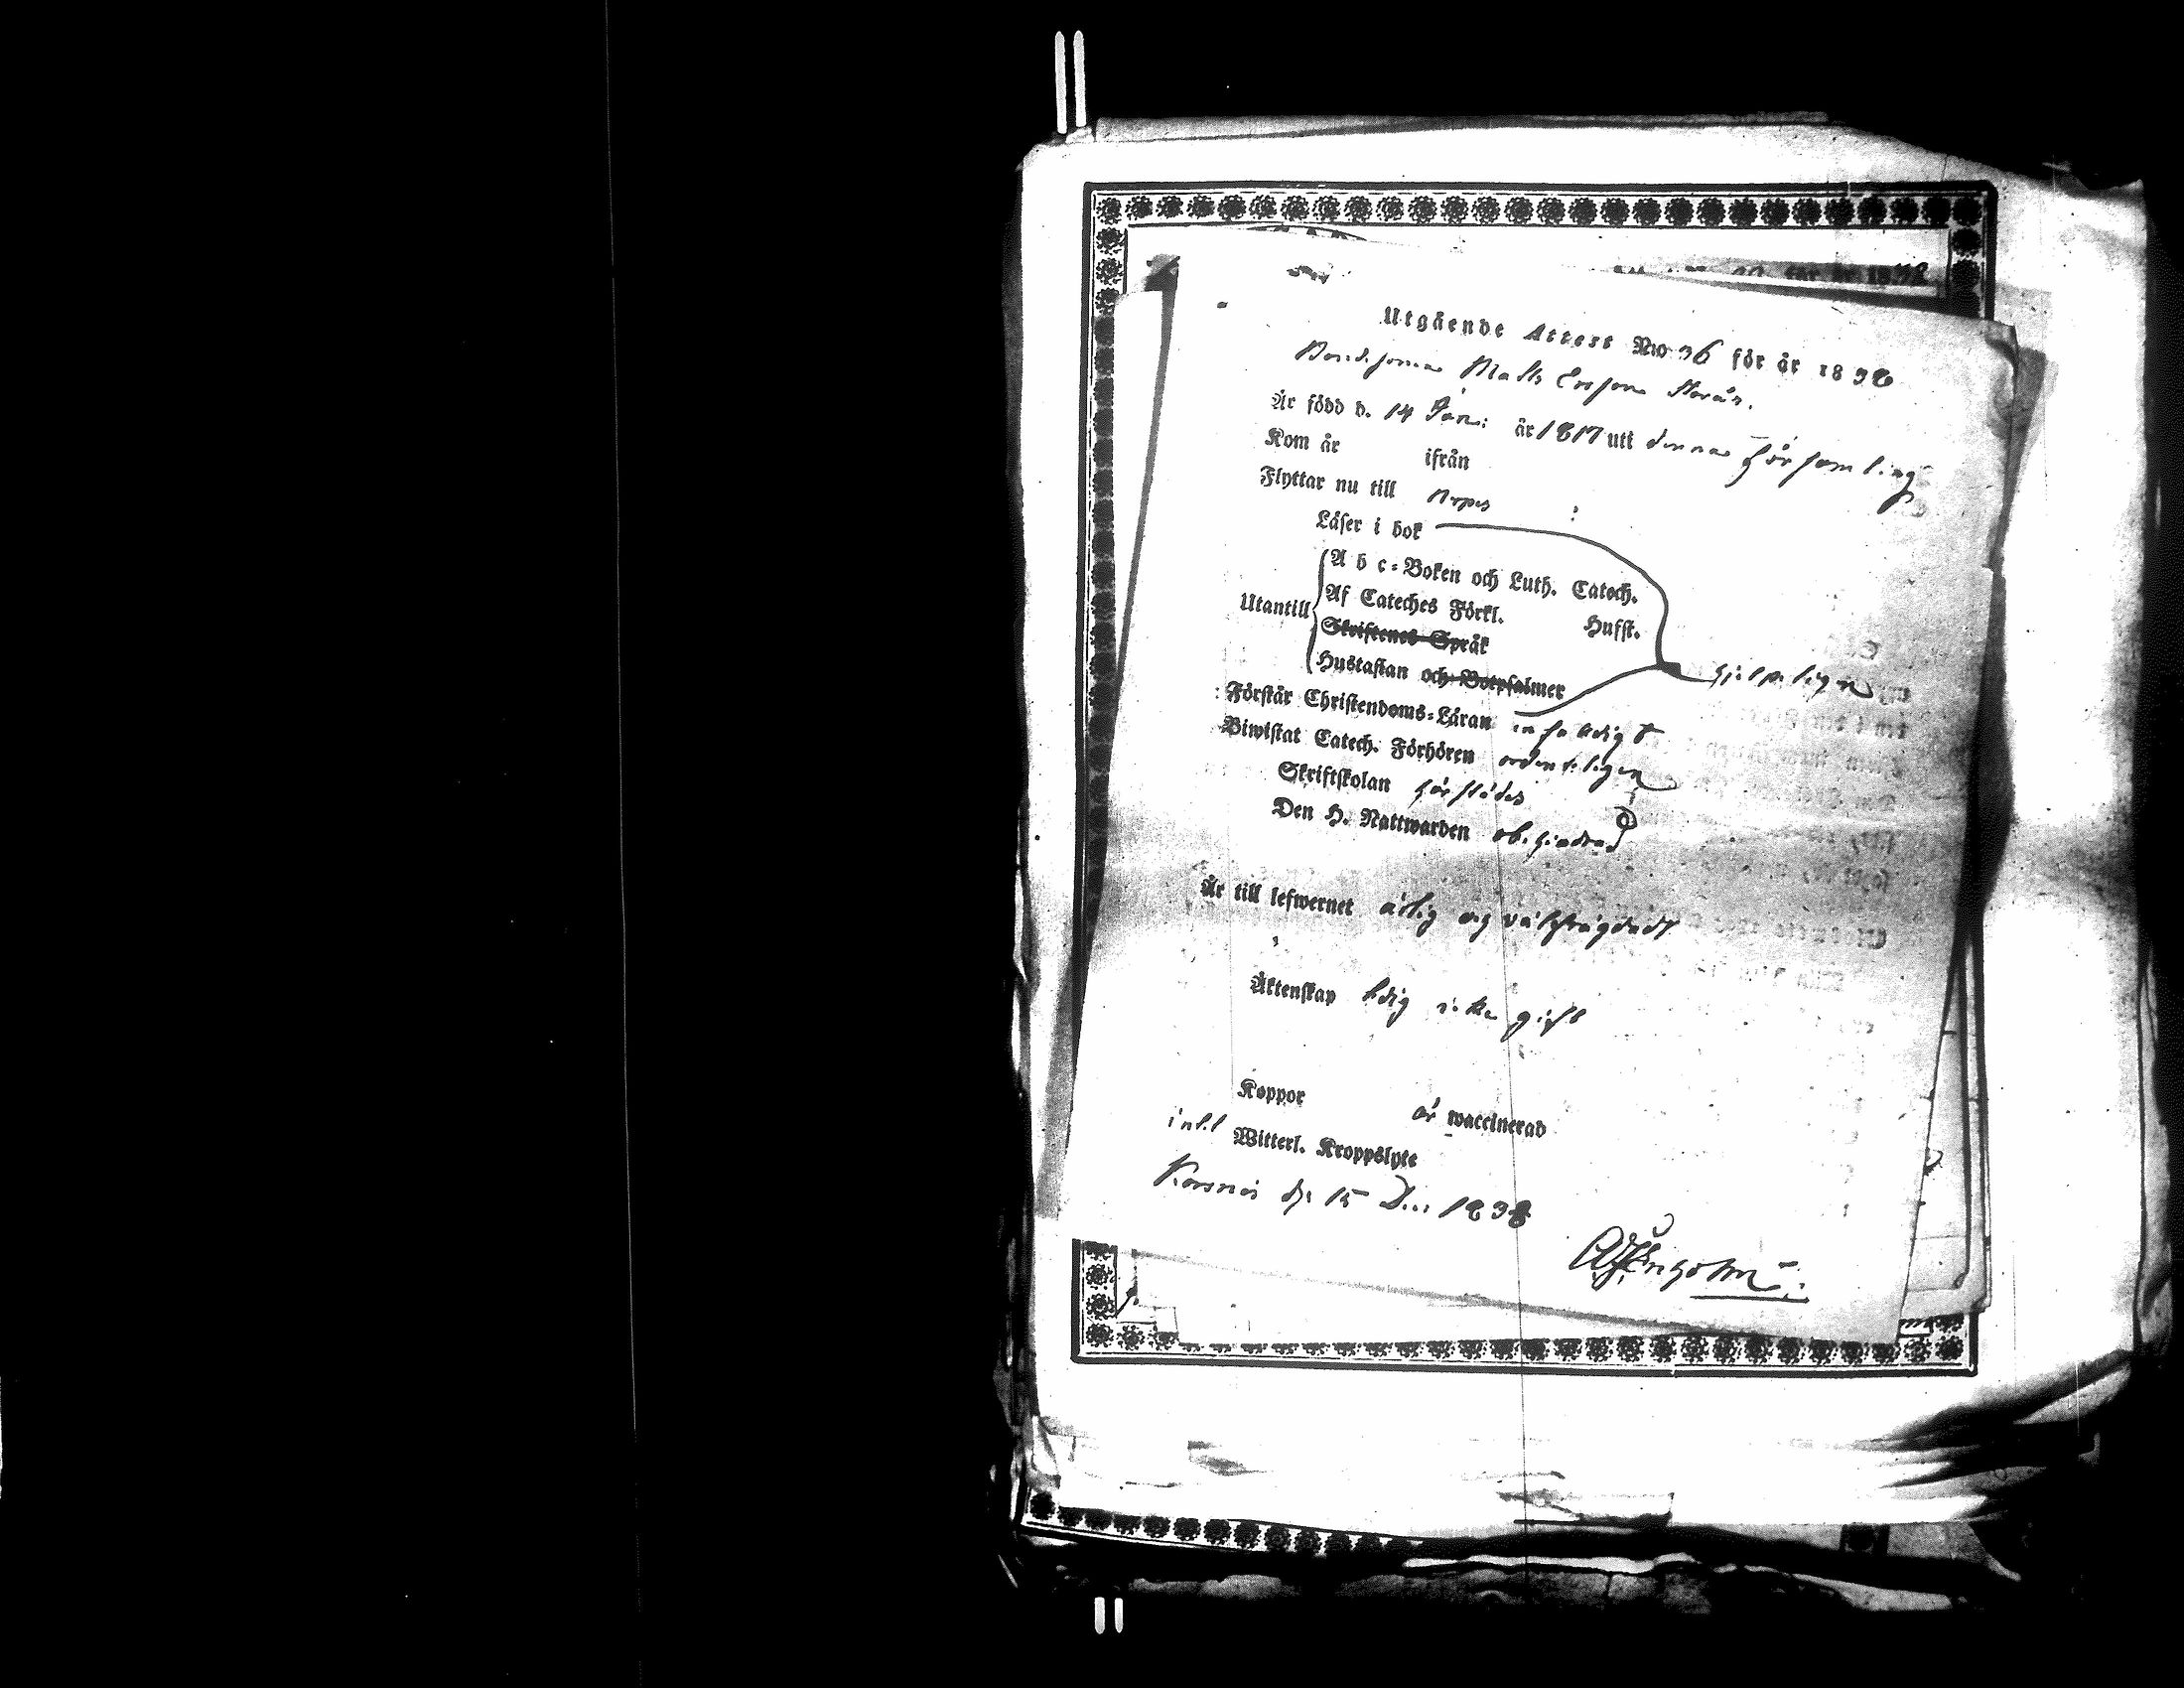 för år 1838
Utgående Attest No 36 för år 1838
Bondesonen Matts Ersson Storås.
Är född d. 14 Jan: år 1817 utt denna Församling
Kom år ifrån
Flyttar nu till Nerpes
Läser i bok
A b c-Boken och Luth. Catech.
Utantill Af Cateches Förkl. Husst.
Skriftenes Språk
Hustaflan och Botpsalmer hjelpeligen
Förstår Christendoms-Läran enfaldigt
Biwistat Catech. Förhören ordenteligen
Skriftskolan förstådes
Den H. Nattwarden obehindrad
Är till lefwernet ärlig och välfrägdadt
Äktenskap ledig icke gift
Koppor är waccinerad
intet Witterl. Kroppslyte
Korsnäs d. 15 Dec: 1838